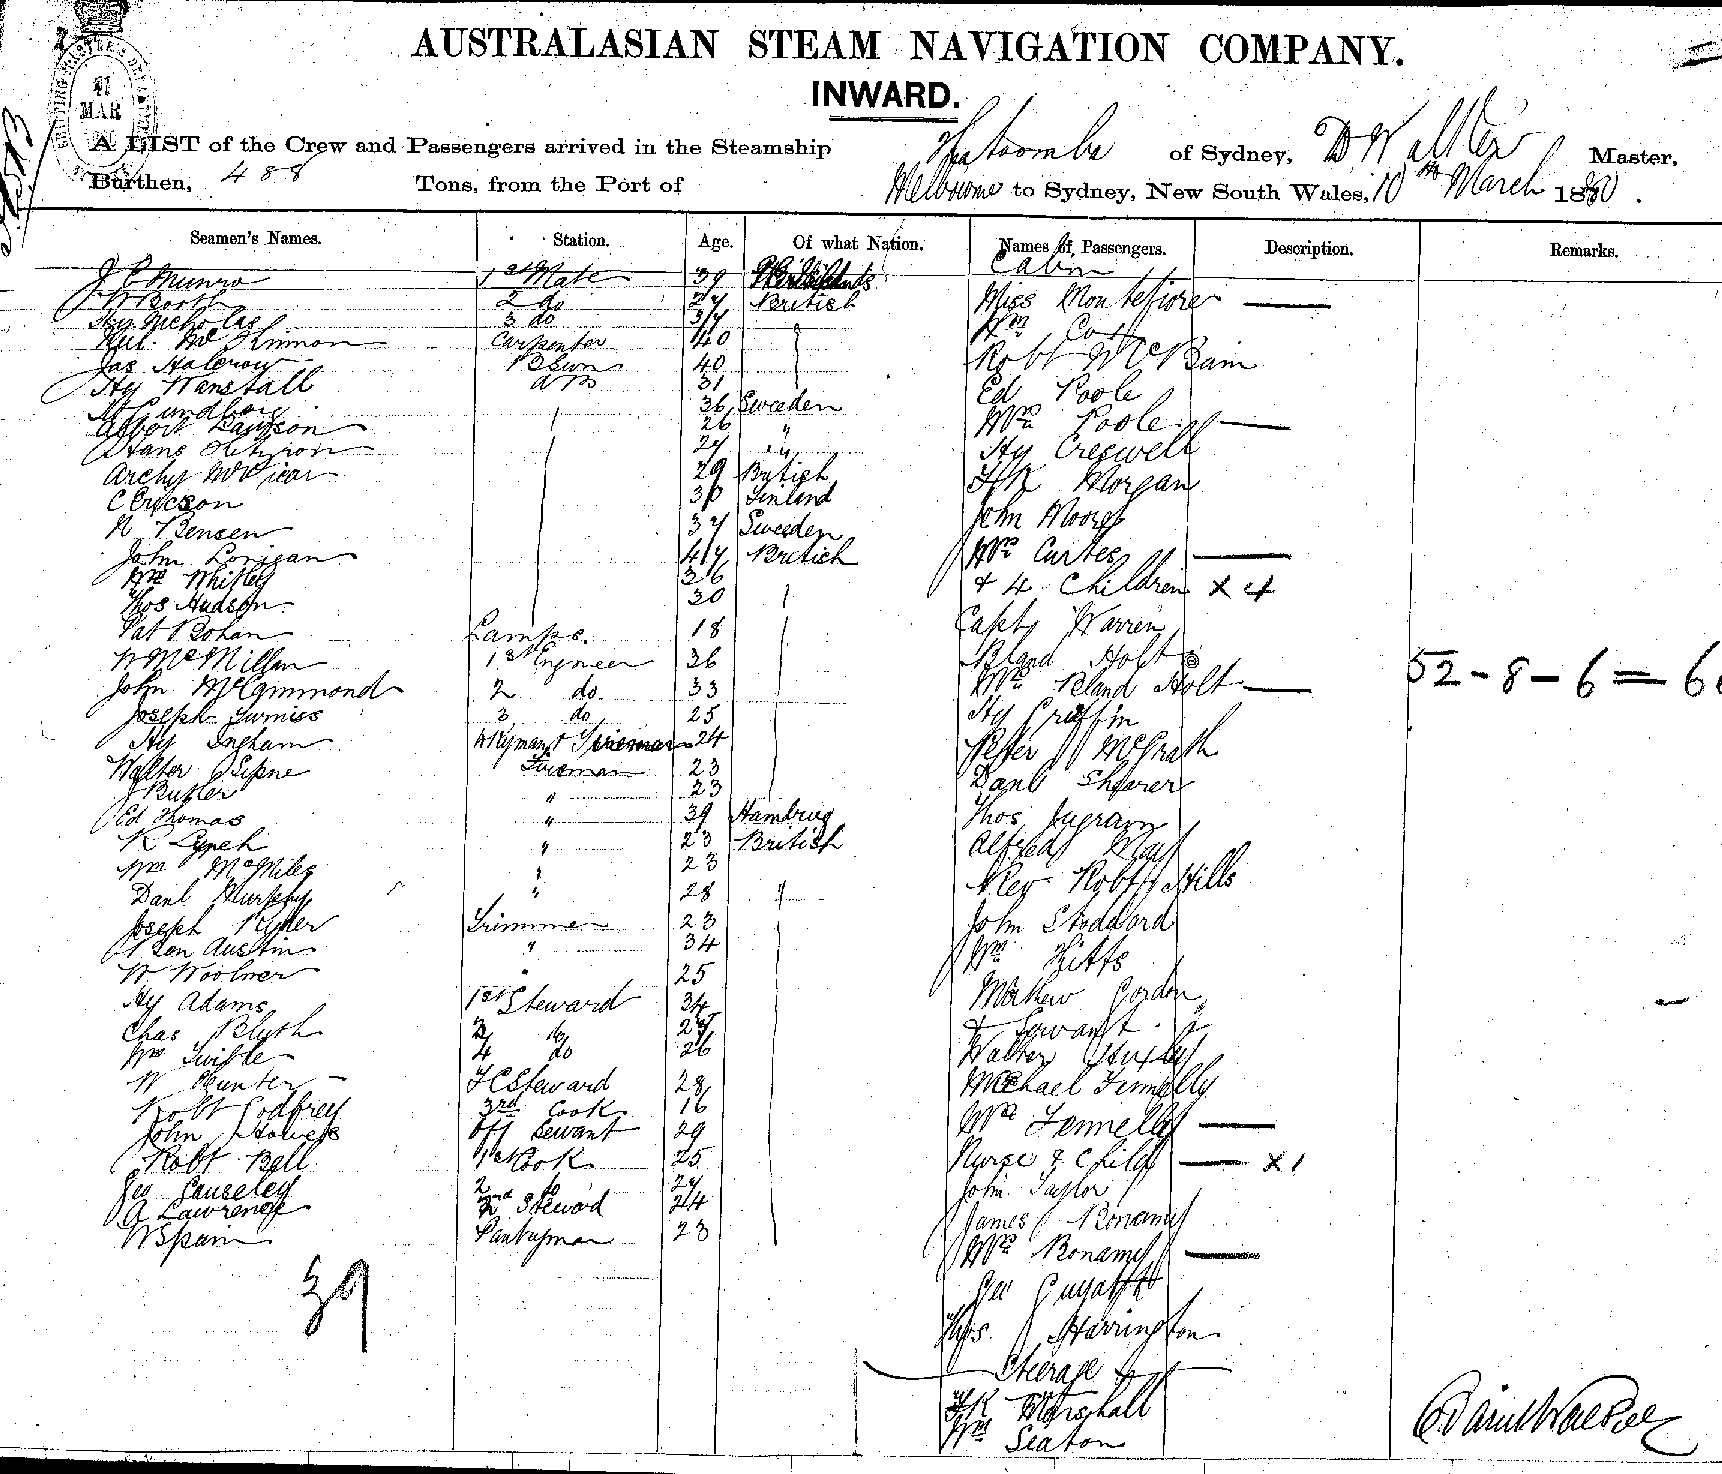 AUSTRALASIAN STEAM NAVIGATION COMPANY.
INWARD.
41
MAR
A LIST of the Crew and Passengers arrived in the Steamship of Sydney, D Walker Master,
Burthen, 488 Tons, from the Port of Melbourne to Sydney, New South Wales, 10th March 1880.
Seamen's Names. Station. Age. Of what Nation. Names of Passengers. Description. Remarks.
Cabin
J C Munro 1st Mate 39
W Booth 2 do 27 British Miss Montefiore
Hy Nicholas 3 do 37 Wm Cox
Mc Kinnon Carpenter 40 Robt McBain
Jas Halcrow 40
Hy Wanstall AB 31 Ed Poole
36 Sweeden Mrs Poole
Albert 26 "
Hans 27 " Hy Creswell
Archy McVicar 29 British
C Ericson 30 Finland Morgan
N Bensen 37 Sweeden John Moore
John Lonigan 47 British Mrs Curtes
Wm Whitley 36 & 4 Children x 4
Thos Hudson 30
Pat Bohan Lamps. 18 Capt Warren
W McMillan 1st Engneer 36 Bland Holt
John McCammond 2 do. 33 Mrs Bland Holt
52-8-6=
Joseph 3 do 25 Hy Griffin
Hy Ingham Fireman 24 Peter McGrath
Walter Fireman 23 Danl Shearer
J Butler " 23
Ed Thomas " 39 Hamburg Thos Ingram
R Lynch " 23 British Alfred May
Wm McMiles " 23
Danl Murphy " 28 Rev Robt Hills
Joseph Trimmer 23 John Stoddard
Austin " 34 Wm Pitts
W Woolner " 25
Hy Adams 1st Steward 34 Gordon
Chas Blyth 2 do 27 & Servant
Wm Swible 4 do 26 Walter Huxley
W Hunter F C Steward 28 Michael Fennelly
Robt Godfrey 3rd Cook 16
John Off Sewant 29 Mrs Fennelly
Robt Bell 1st Cook 25 Nurse & Child x 1
Geo Causeley 2 do 27 John Taylor
A Lawrence 2nd Steward 24 James Bonamy
W Spain Pantryman 23 Mrs Bonamy
39
Geo Guyatt
Thos. Harrington
Steerage
Marshall
Wm Seaton